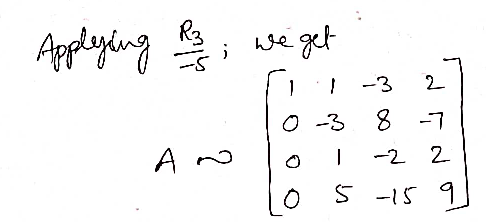 Applying R3/-5; we get
1 1 -3 2
0 -3 8 -7
A ~ 0 1 -2 2
0 5 -15 9